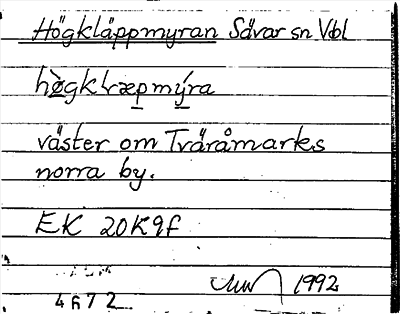 Högkläppmyran Sävar sn Vbl
hògkłræpmýra
väster om Tväråmarks
norra by.
EK 20K9f
1992
4672